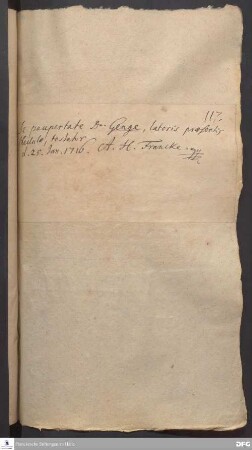 117.
de paupertate Dn. Genge, latoris præsentis
schedulæ, testatur
d. 25. Jan. 1716. A. H. Francke
Franckesche Stiftungen zu Halle
DFG